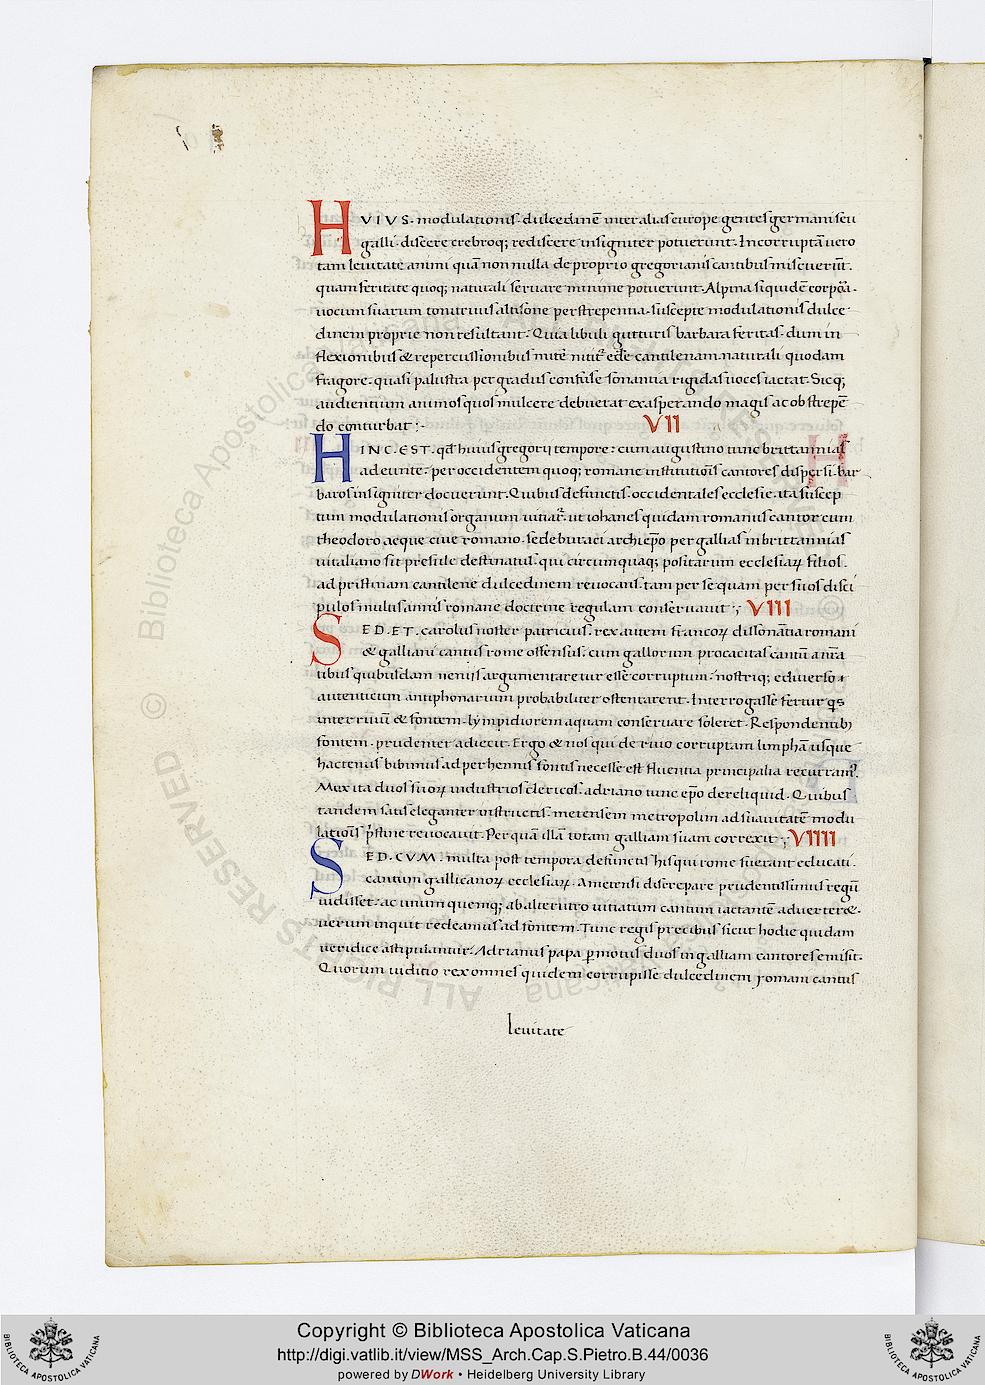 HVIVS. modulationis. dulcedinē inter alias europe gentes germani seu
galli. discere crebroq; rediscere insigniter potuerunt. Incorruptā uero
tam leuitate animi quā non nulla de proprio gregorianis cantibus miscuerūt.
quam feritate quoq; naturali seruare minime potuerunt. Alpina siquidē corpora.
uocum suarum tonitruis altisone perstrepentia. suscepte modulationis dulce
dinem proprie non resultant. Quia libuli gutturis barbara feritas. dum in
flexionibus & repercussionibus mitē nitit̄ edē cantilenam. naturali quodam
fragore. quasi palustra per gradus confuse sonantia rigidas uoces iactat. Sicq;
audientium animos quos mulcere debuerat exasperando magis ac obstrepē
do conturbat :- VII
HINC. EST. qd̄ huius gregorij tempore: cum augustino tunc brittannias
adeunte. per occidentem quoq; romane institutiōis cantores dispersi. bar
baros insigniter docuerunt. Quibus defunctis. occidentales ecclesie. ita suscep
tum modulationis organum uitiar̄. ut iohanes quidam romanus cantor cum
theodoro aeque ciue romano. sed eburaci archiep̄o per gallias in brittannias
uitaliano sit presule destinatus. qui circumquaq; positarum ecclesiaꝝ filios.
ad pristinam cantilene dulcedinem reuocans. tam per se quam per suos disci
pulos multis annis romane doctrine regulam conseruauit :; VIII
SED. ET. carolus noster patricius. rex autem francoꝝ dissonātia romani
& galliani cantus rome offensus. cum gallorum procacitas cantū a nr̄a
tibus quibusdam nenijs argumentaretur esse corruptum. nostriq; ediuerso
autenticum antiphonarium probabiliter ostentarent. Interrogasse fertur qs
inter riuū & fontem. lympidiorem aquam conseruare soleret. Respondentib;
fontem. prudenter adiecit. Ergo & nos qui de riuo corruptam limphā usque
hactenus bibimus ad perhennis fontis necesse est fluentia principalia recurram;.
Mox ita duos suoꝝ industrios clericos. adriano tunc ep̄o dereliquid. Quibus
tandem satis eleganter instructis. metensem metropolim ad suauitatē modu
latiōis p̄stine reuocauit. Per quā illā totam galliam suam correxit :; VIIII
SED. CVM. multa post tempora defunctis his qui rome fuerant educati.
cantum gallicanoꝝ ecclesiaꝝ. a metensi discrepare prudentissimus regū
uidisset. ac unum quemq; ab alterutro uitiatum cantum iactantē aduerter&.
uerum inquit redeamus ad fontem. Tunc regis precibus sicut hodie quidam
ueridice astipulantur. Adrianus papa p̄motus duos in galliam cantores misit.
Quorum iuditio rex omnes quidem corrupisse dulcedinem romani cantus
leuitate
Copyright © Biblioteca Apostolica Vaticana
http://digi.vatlib.it/view/MSS_Arch.Cap.S.Pietro.B.44/0036
powered by DWork • Heidelberg University Library